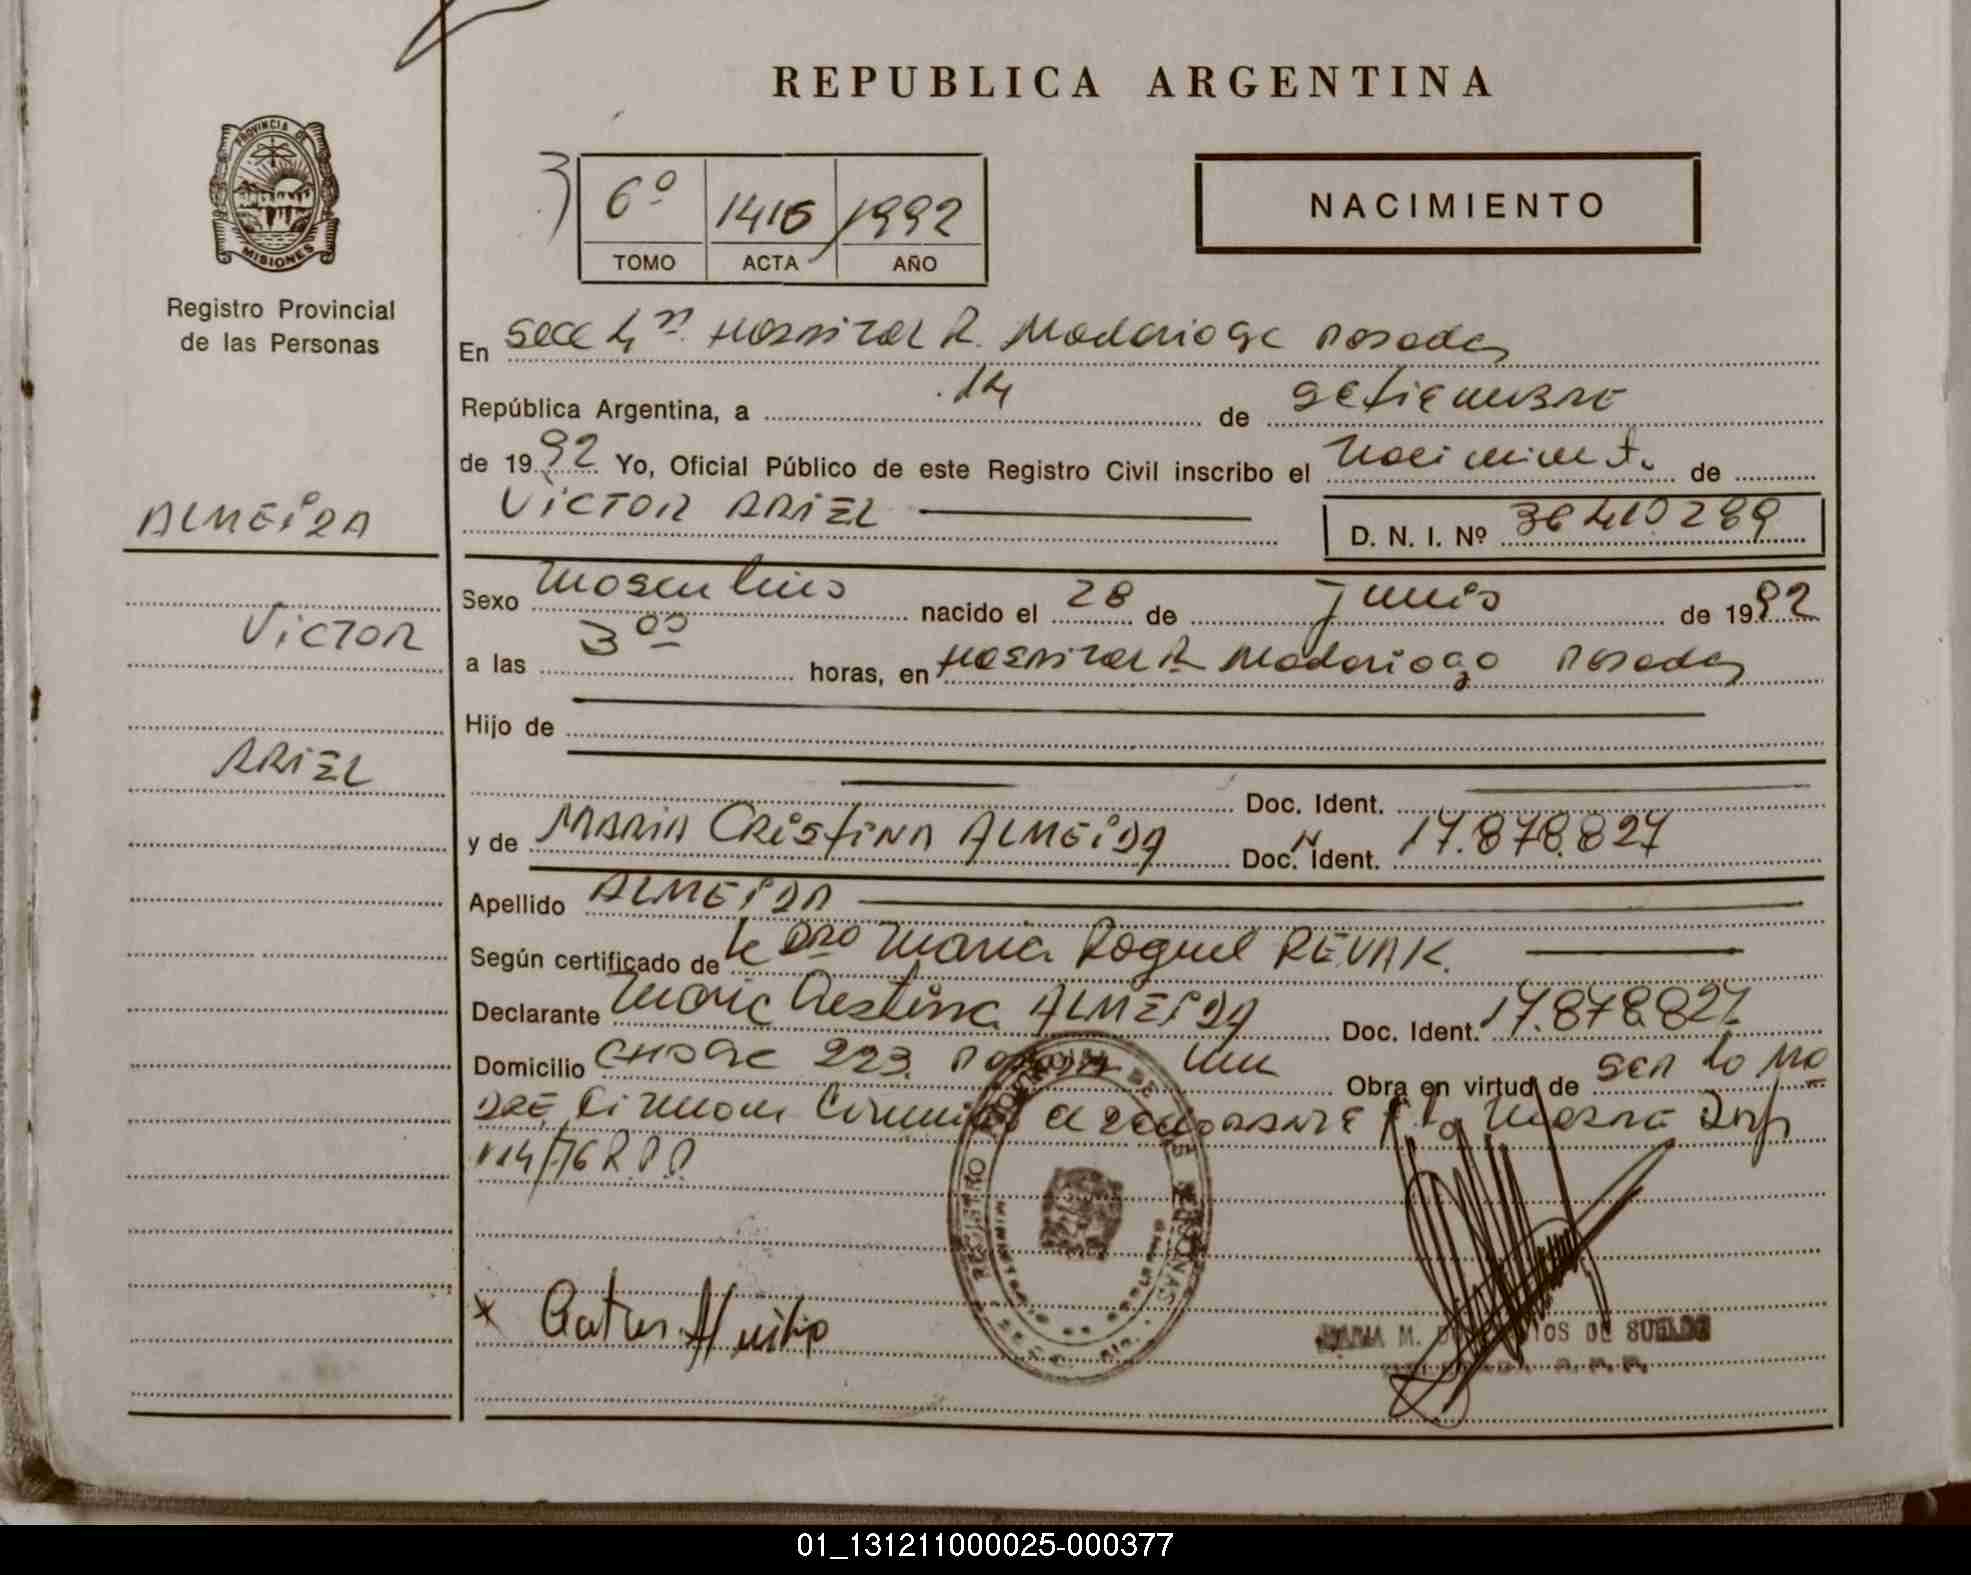 REPUBLICA ARGENTINA
PROVINCIA DE
MISIONES
Registro Provincial
de las Personas
6º 1416 1992
TOMO ACTA AÑO
NACIMIENTO
En Secc 4ª Hospital R. Madariaga Posadas
República Argentina, a 14 de setiembre
de 1992 Yo, Oficial Público de este Registro Civil inscribo el Nacimiento de
ALMEIDA
VICTOR ARIEL
D. N. I. Nº 36.410.289
Sexo Masculino nacido el 28 de Junio de 1992
VICTOR
a las 3 00 horas, en Hospital R. Madariaga Posadas
Hijo de
ARIEL
Doc. Ident.
y de MARIA CRISTINA ALMEIDA Doc. Ident. 17.878.827
Apellido ALMEIDA
Según certificado de la Dra Maria Raquel REVAK.
Declarante Maria Cristina ALMEIDA Doc. Ident. 17.878.827
Domicilio 223. Obra en virtud de ser la ma
dre
114/76
REGISTRO DE LAS PERSONAS
MARIA M. DE SUELDO
01_131211000025-000377